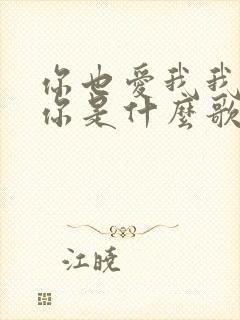 你也爱我我
你是什麼歌
江晓